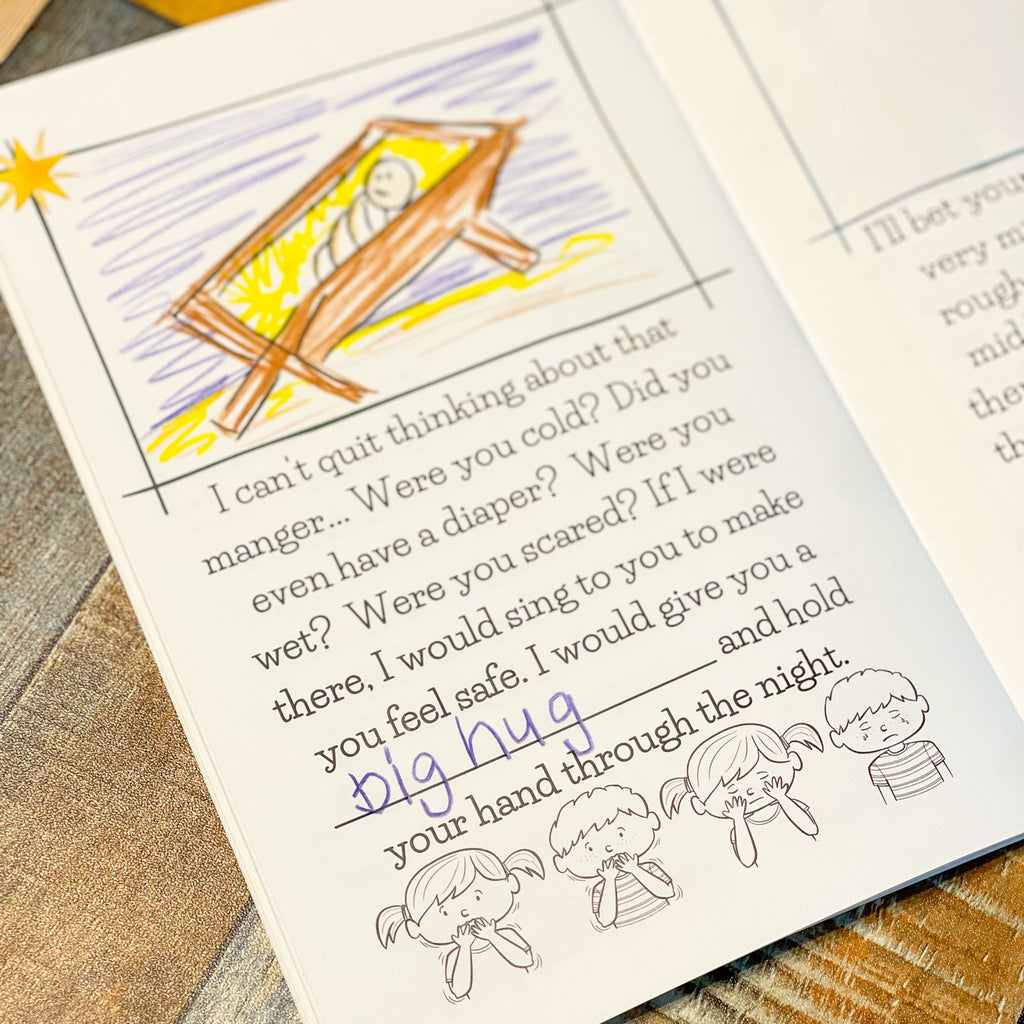 I can't quit thinking about that
manger... Were you cold? Did you
even have a diaper? Were you
wet? Were you scared? If I were
there, I would sing to you to make
you feel safe. I would give you a
big hug and hold
your hand through the night.
I'll bet your
very
rough